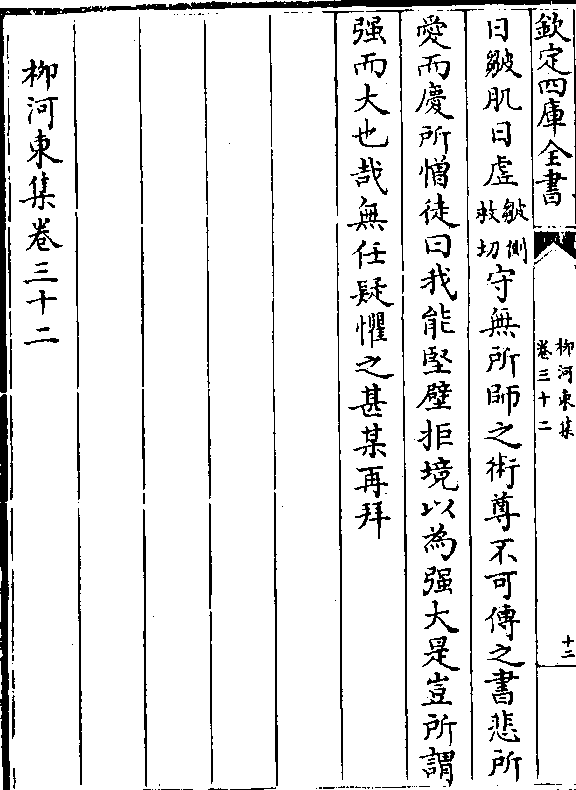 欽定四庫全書
柳河東集
卷三十二
十二
日皺肌日虚皺側救切守無所師之術尊不可傳之書悲所
愛而慶所憎徒曰我能堅壁拒境以為强大是豈所謂
强而大也哉無任疑懼之甚某再拜
柳河東集卷三十二